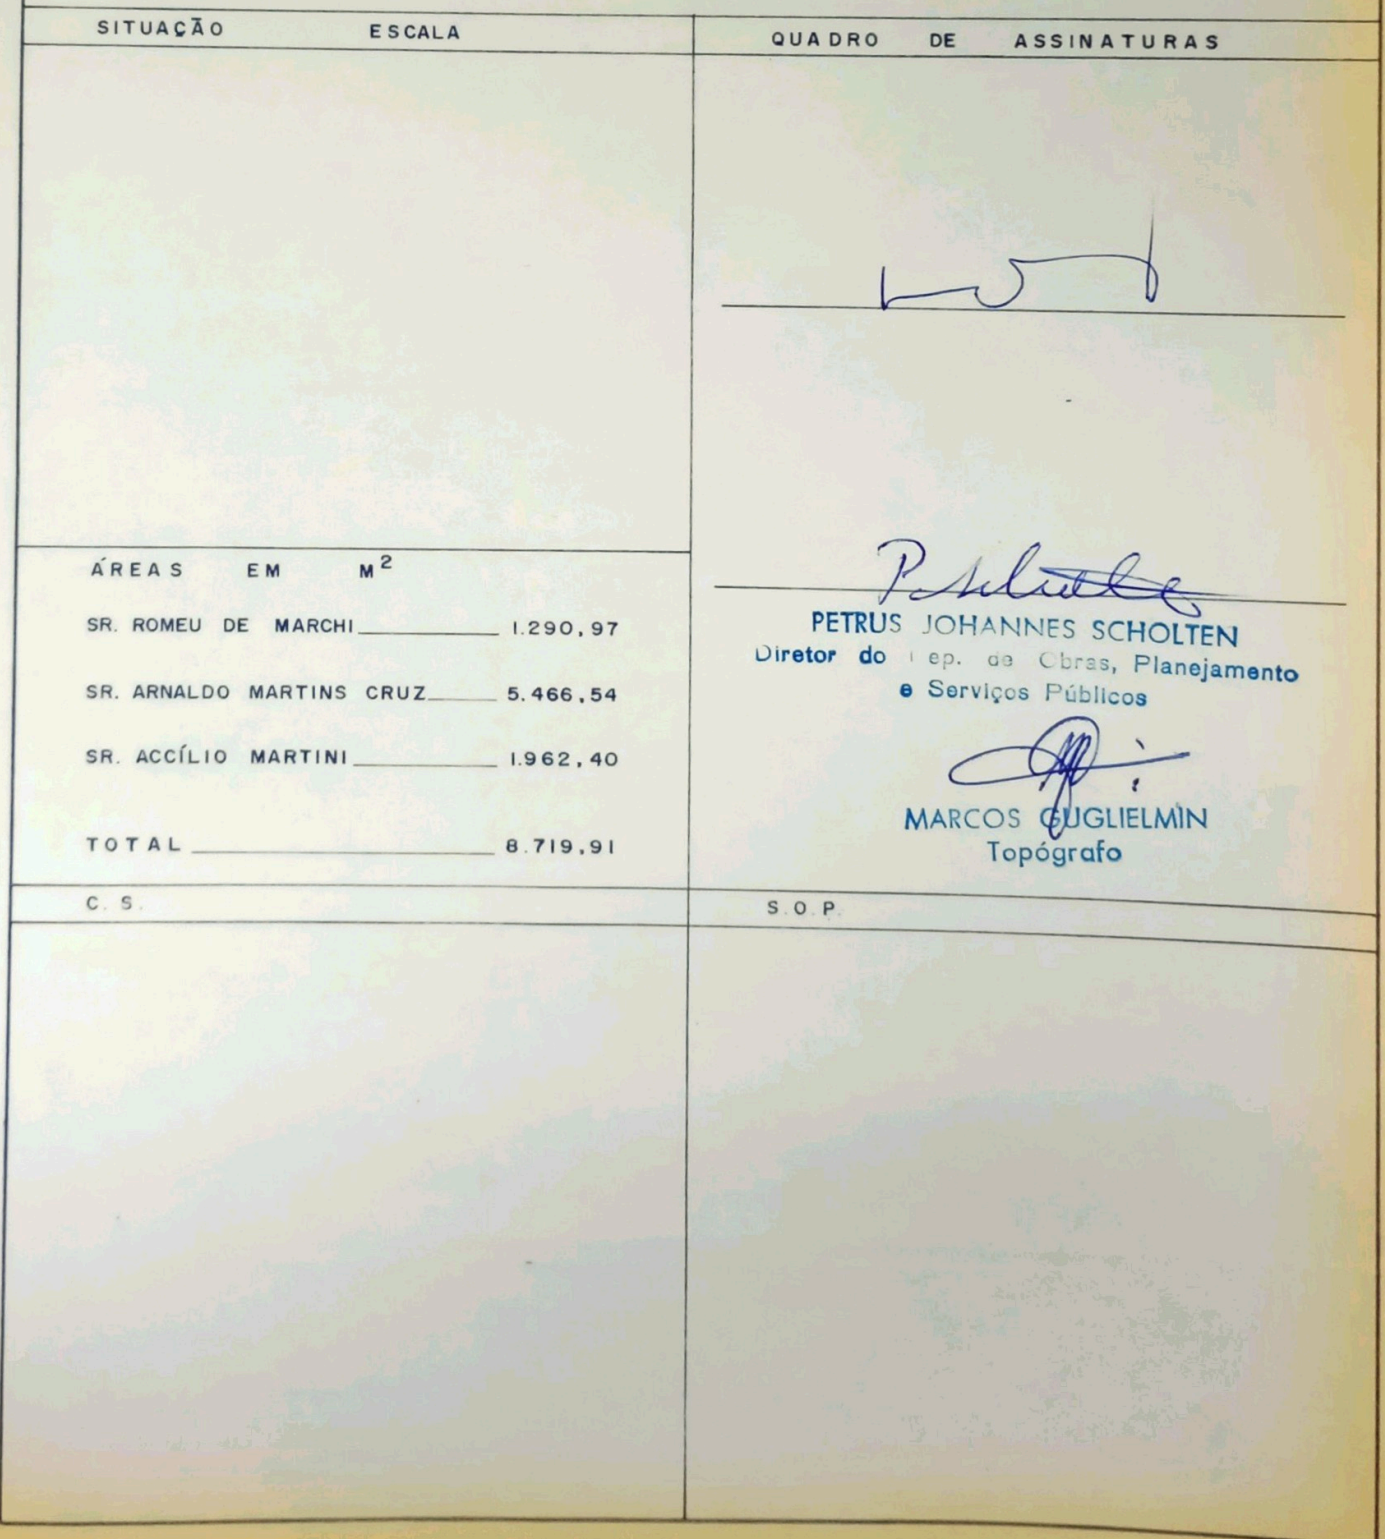 SITUAÇÃO ESCALA
QUADRO DE ASSINATURAS
ÁREAS EM M²
SR. ROMEU DE MARCHI 1.290,97
SR. ARNALDO MARTINS CRUZ 5.466,54
SR. ACCÍLIO MARTINI 1.962,40
TOTAL 8.719,91
P. Scholten
PETRUS JOHANNES SCHOLTEN
Diretor do ep. de Obras, Planejamento
e Serviços Públicos
MARCOS GUGLIELMIN
Topógrafo
C. S.
S.O.P.